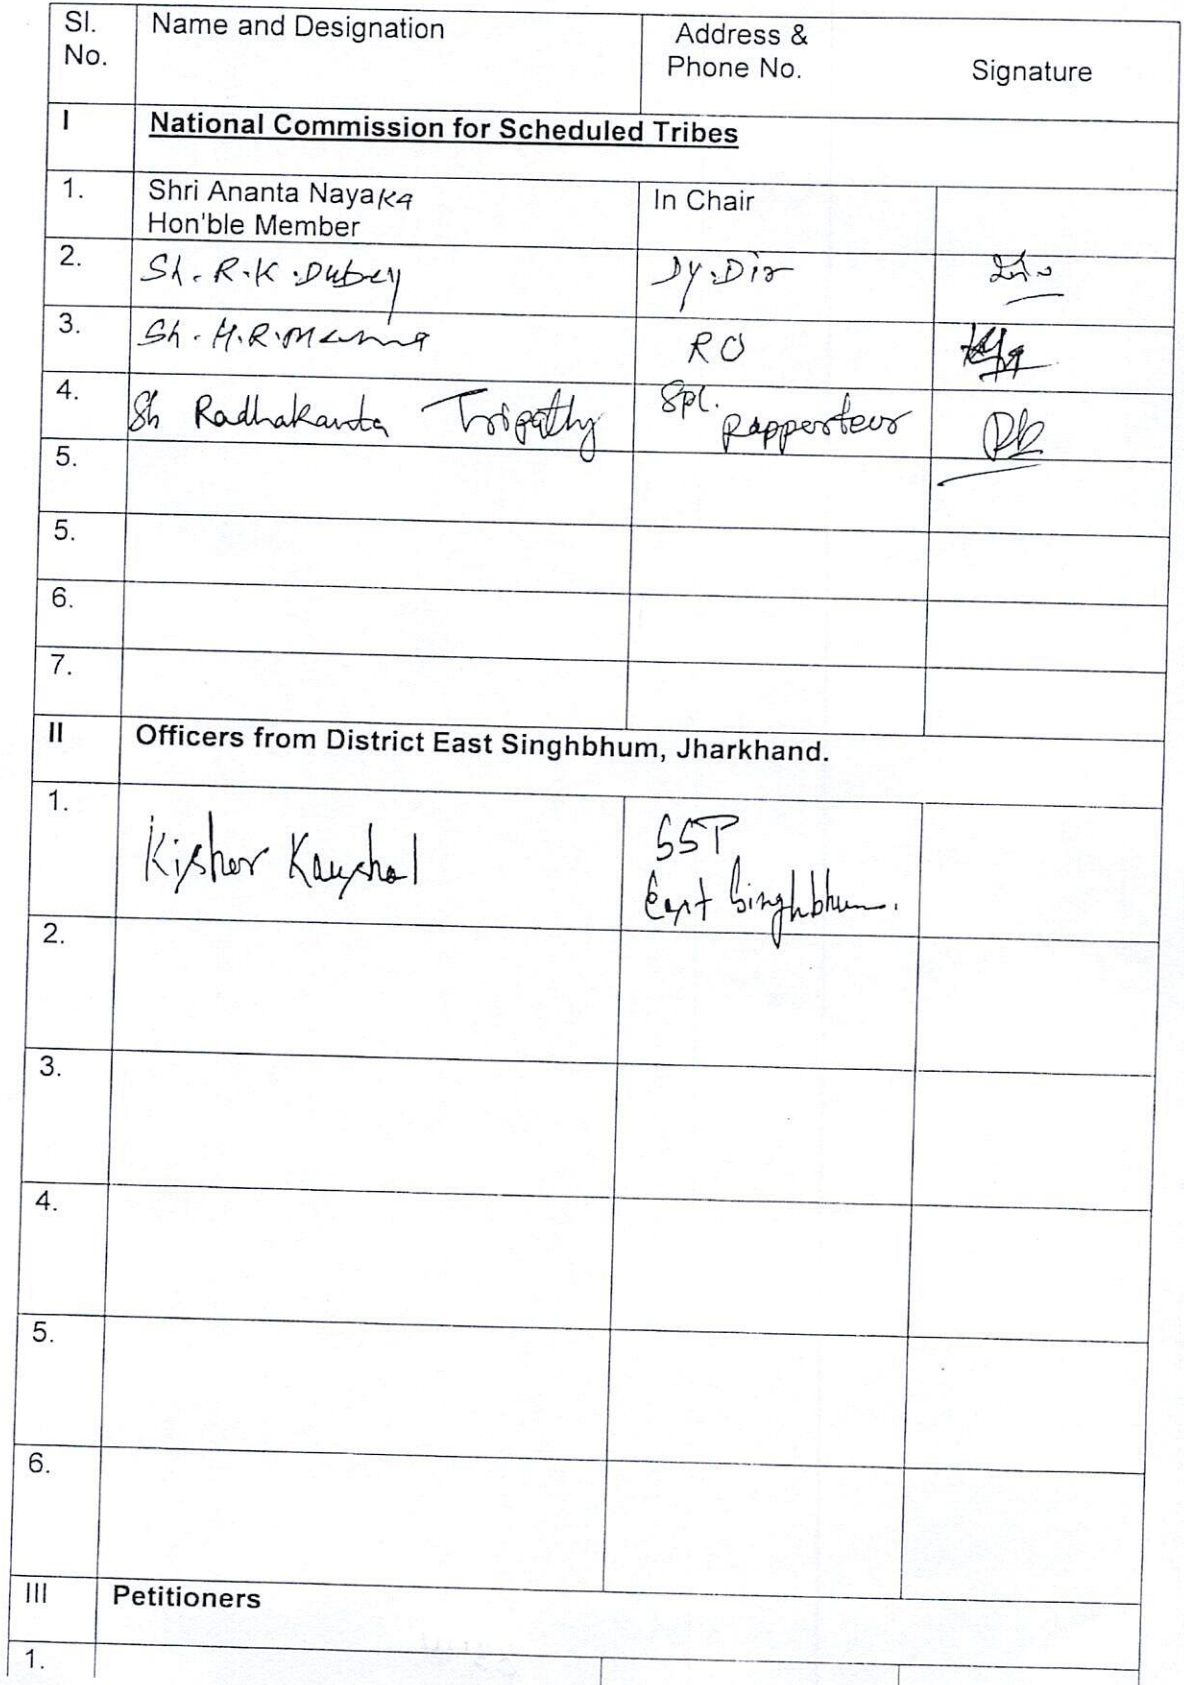 Sl. No. Name and Designation Address & Phone No. Signature
I National Commission for Scheduled Tribes
1. Shri Ananta Nayaka In Chair
Hon'ble Member
2. Sh. R.K. Dubey Dy. Dir
3. Sh. H.R. Meena RO
4. Sh Radhakanta Tripathy Spl. Rapporteur
5.
5.
6.
7.
II Officers from District East Singhbhum, Jharkhand.
1. Kishor Kaushal SSP
East Singhbhum.
2.
3.
4.
5.
6.
III Petitioners
1.